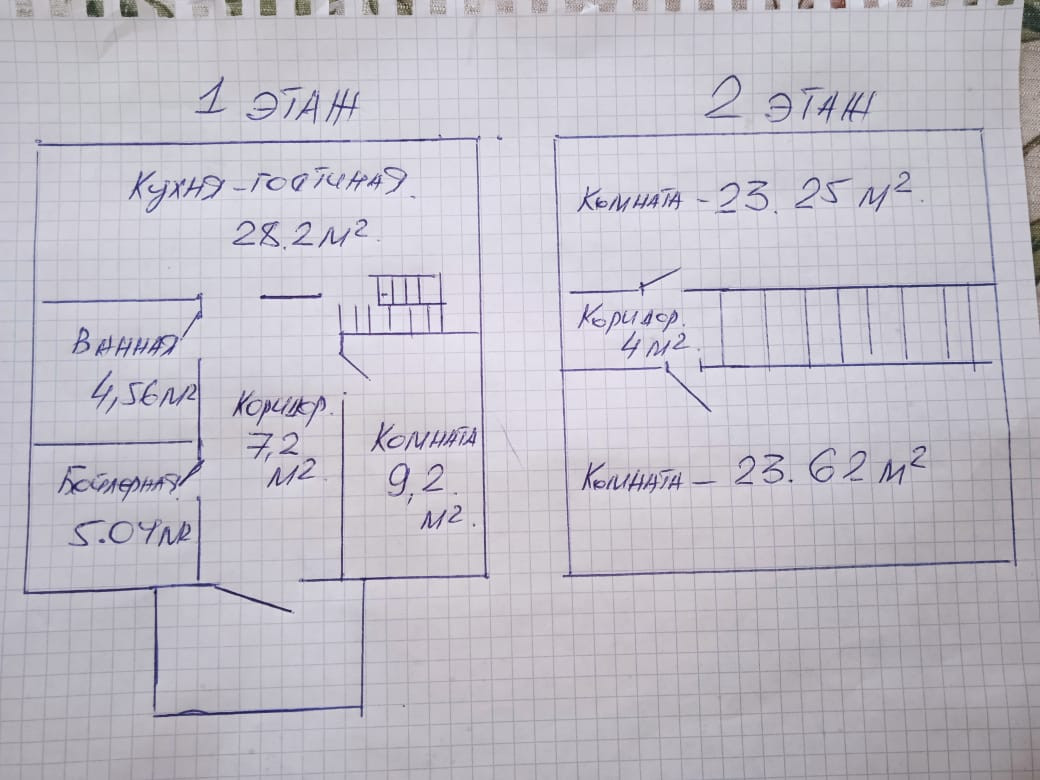 1 ЭТАЖ
Кухня-гостиная.
28.2 м²
Ванная
4,56 м2
Коридор.
7,2
м2.
Комната
9,2.
м2.
Бойлерная
5.04 м2
2 ЭТАЖ
Комната - 23.25 м².
Коридор.
4 м2.
Комната - 23.62 м²